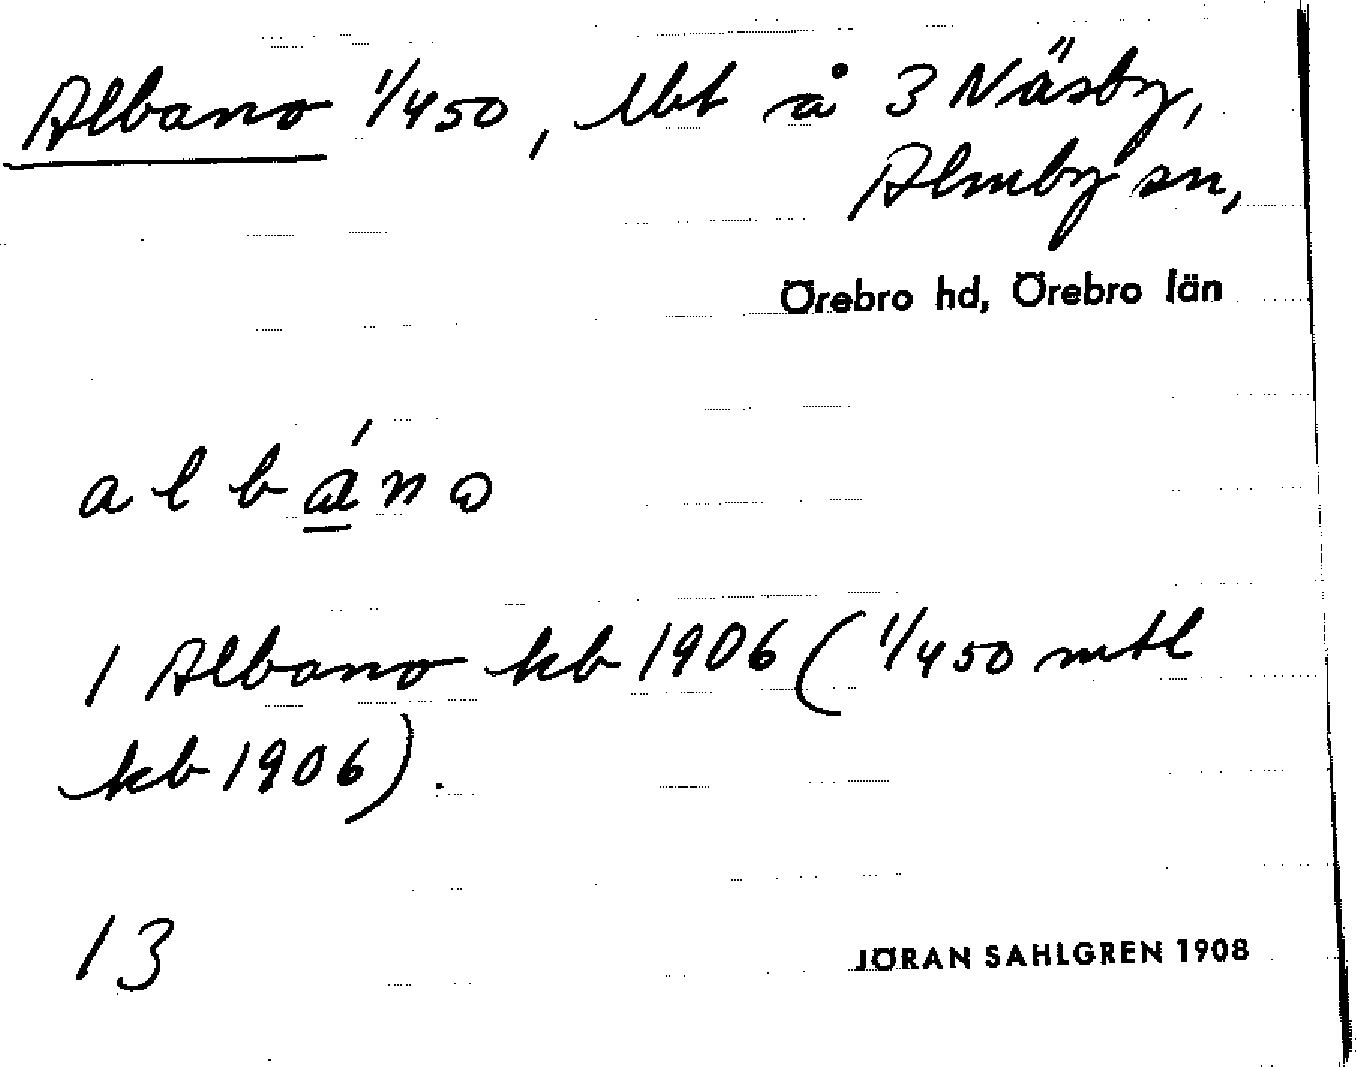 Albano 1/450, lbt å 3 Näsby,
Almby sn,
Örebro hd, Örebro län
albáno
1 Albano kb 1906 (1/450 mtl
kb 1906).
13
JÖRAN SAHLGREN 1908